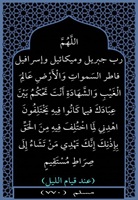 اللَّهُمَّ
رب جبريل وميكائيل وإسرافيل
فاطر السموات والأرض عالم
الغيب والشهادة أنت تحكم بين
عبادك فيما كانوا فيه يختلفون
اهدني لما اختلف فيه من الحق
بإذنك إنك تهدي من تشاء إلى
صراط مستقيم
(عند قيام الليل)
مسلم (٧٧٠)